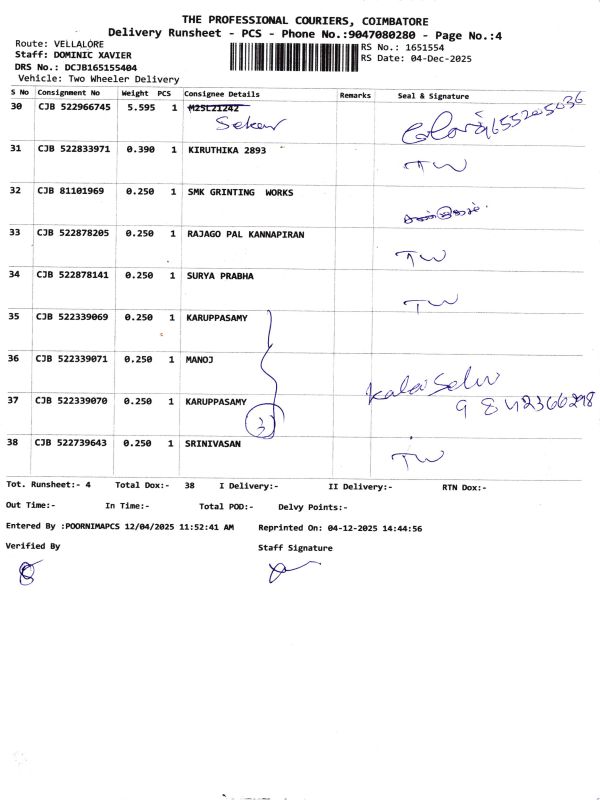 THE PROFESSIONAL COURIERS, COIMBATORE
Delivery Runsheet - PCS - Phone No.:9047080280 - Page No.:4
Route: VELLALORE
RS No.: 1651554
Staff: DOMINIC XAVIER
RS Date: 04-Dec-2025
DRS No.: DCJB165155404
Vehicle: Two Wheeler Delivery
S No Consignment No Weight PCS Consignee Details Remarks Seal & Signature
30 CJB 522966745 5.595 1 M25L21242
Sekar
31 CJB 522833971 0.390 1 KIRUTHIKA 2893 TW
32 CJB 81101969 0.250 1 SMK GRINTING WORKS
33 CJB 522878205 0.250 1 RAJAGO PAL KANNAPIRAN TW
34 CJB 522878141 0.250 1 SURYA PRABHA TW
35 CJB 522339069 0.250 1 KARUPPASAMY
36 CJB 522339071 0.250 1 MANOJ
Kalai Selvi
37 CJB 522339070 0.250 1 KARUPPASAMY
3
38 CJB 522739643 0.250 1 SRINIVASAN TW
Tot. Runsheet:- 4 Total Dox:- 38 I Delivery:- II Delivery:- RTN Dox:-
Out Time:- In Time:- Total POD:- Delvy Points:-
Entered By :POORNIMAPCS 12/04/2025 11:52:41 AM Reprinted On: 04-12-2025 14:44:56
Verified By Staff Signature